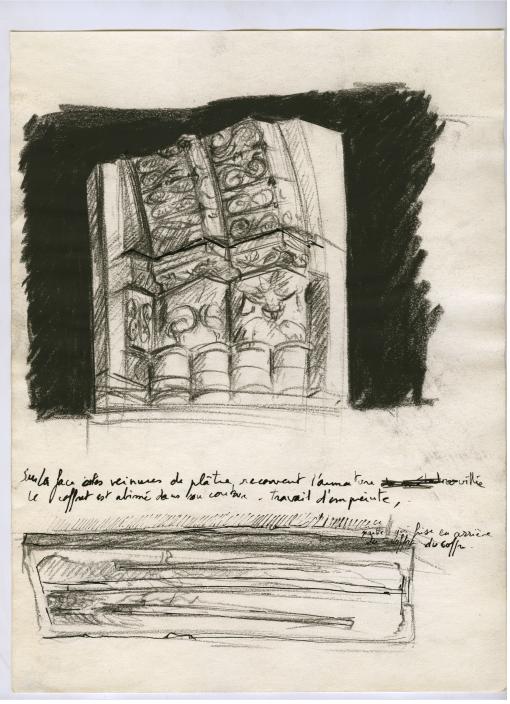 Sur la face des veinures de plâtre, recouvrent l'armature rouillée
Le coffret est abîmé dans son contour - travail d'empreinte,
fuse en arrière
du coffre